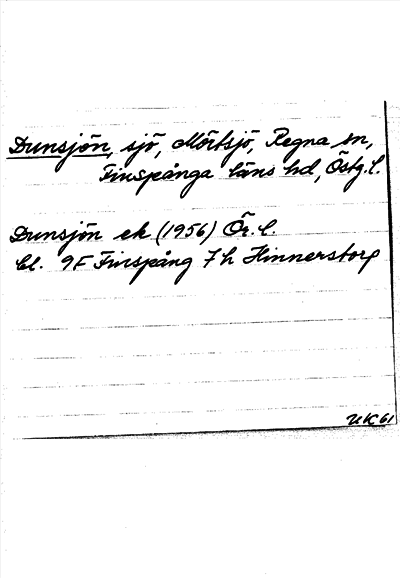 Dunsjön, sjö, Mörtsjö, Regna sn,
Finspånga läns hd, Östg. l.
Dunsjön ek (1956) Ör. l.
bl. 9F Finspång 7h Hinnerstorp
UK 61